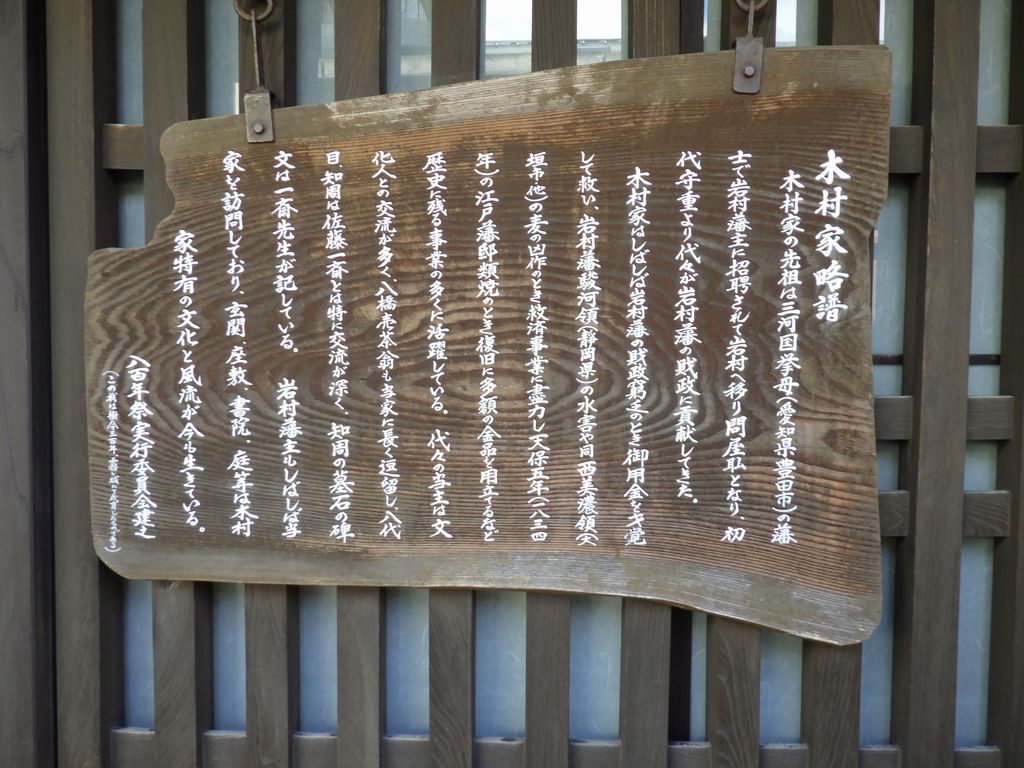 木村家略譜
木村家の先祖は三河国挙母(愛知県豊田市)の藩
士で岩村藩主に招聘されて岩村へ移り問屋取となり、初
代守重さり代々が岩村藩の財政に貢献してきた。
木村家はしばしば岩村藩の財政窮乏のとき御用金を才覚
して救い、岩村藩駿河領(静岡県)の水害や同西美濃領(大
垣市他)の麦の凶作のとき救済事業に盡力し天保五年(一八三四
年)の江戸藩邸類焼のとき復旧に多額の金品を用立るなど
歴史に残る事業の多くに活躍している。 代々の当主は文
化人との交流が多く八橋売茶翁も当家に長く逗留し、八代
目、知周は佐藤一斎とは特に交流が深く、知周の墓石の碑
文は一斎先生が記している。 岩村藩主もしばしば当
家を訪問しており、玄関、座敷、書院、庭等は木村
家特有の文化と風流が今も生きている。
八百年祭実行委員会建之